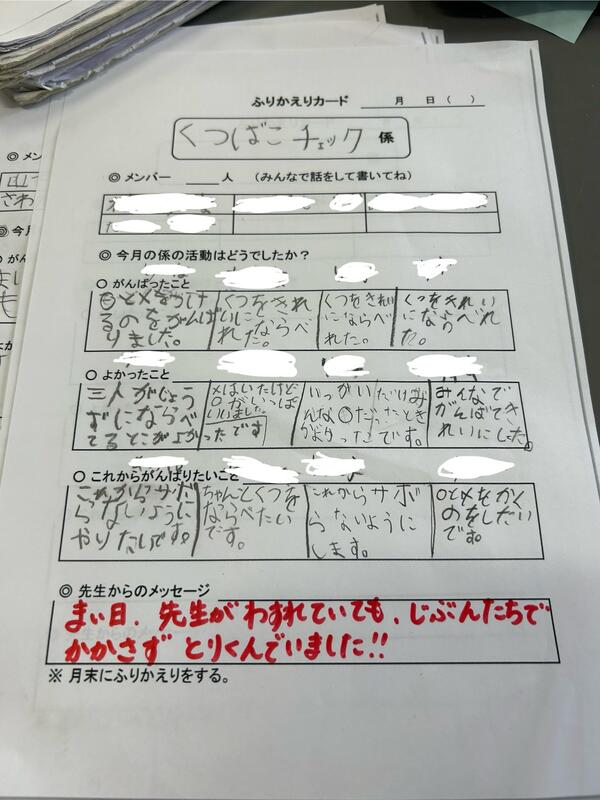 ふりかえりカード　月　日（　）
くつばこチェック 係
◎ メンバー　人　（みんなで話をして書いてね）
◎ 今月の係の活動はどうでしたか？
○ がんばったこと
○と×をかけ
るのをがんば
りました。
くつをきれ
いになら
べれた。
くつをきれい
にならべ
れた。
くつをきれい
にならべれ
た。
○ よかったこと
三人がじょう
ずにならべ
てるとこがよか
ったです
×はいたけど
○がいっぱ
いいました。
いっかいだけみ
んな○だったとき
がよかったです。
みんなで
がんばてき
れいにした。
○ これからがんばりたいこと
これからサボ
らないように
やりたいです。
ちゃんとくつを
ならべたい
です。
これからサボ
らないように
します。
○と×をかく
のをしたい
です。
◎ 先生からのメッセージ
まい日、先生がわすれていても、じぶんたちで
かかさず とりくんでいました!!
※ 月末にふりかえりをする。
◎ メン